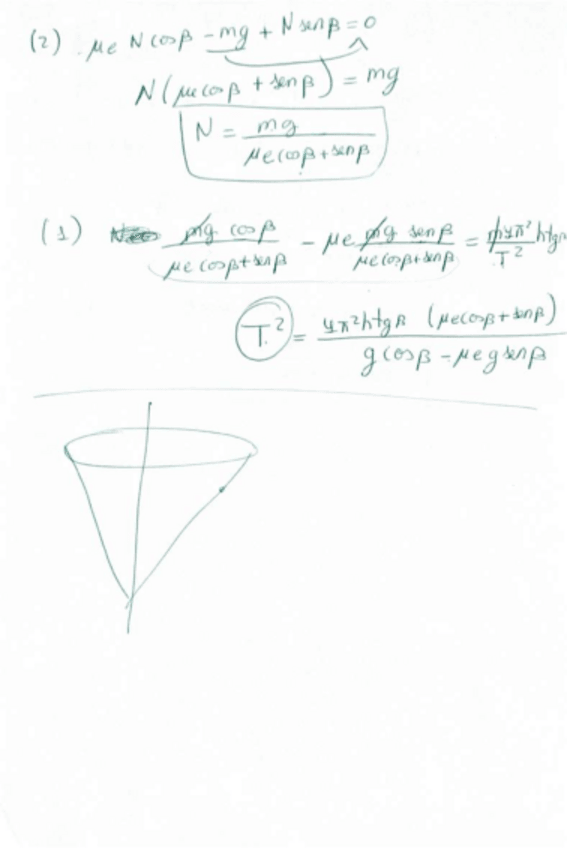 (2) μe N cosβ - mg + N senβ = 0
N (μe cosβ + senβ) = mg
N = mg / μe cosβ + senβ
(1) mg cosβ / μe cosβ + senβ - μe mg senβ / μe cosβ + senβ = m4π² h tgβ / T²
T² = 4π² h tgβ (μe cosβ + senβ) / g cosβ - μe g senβ